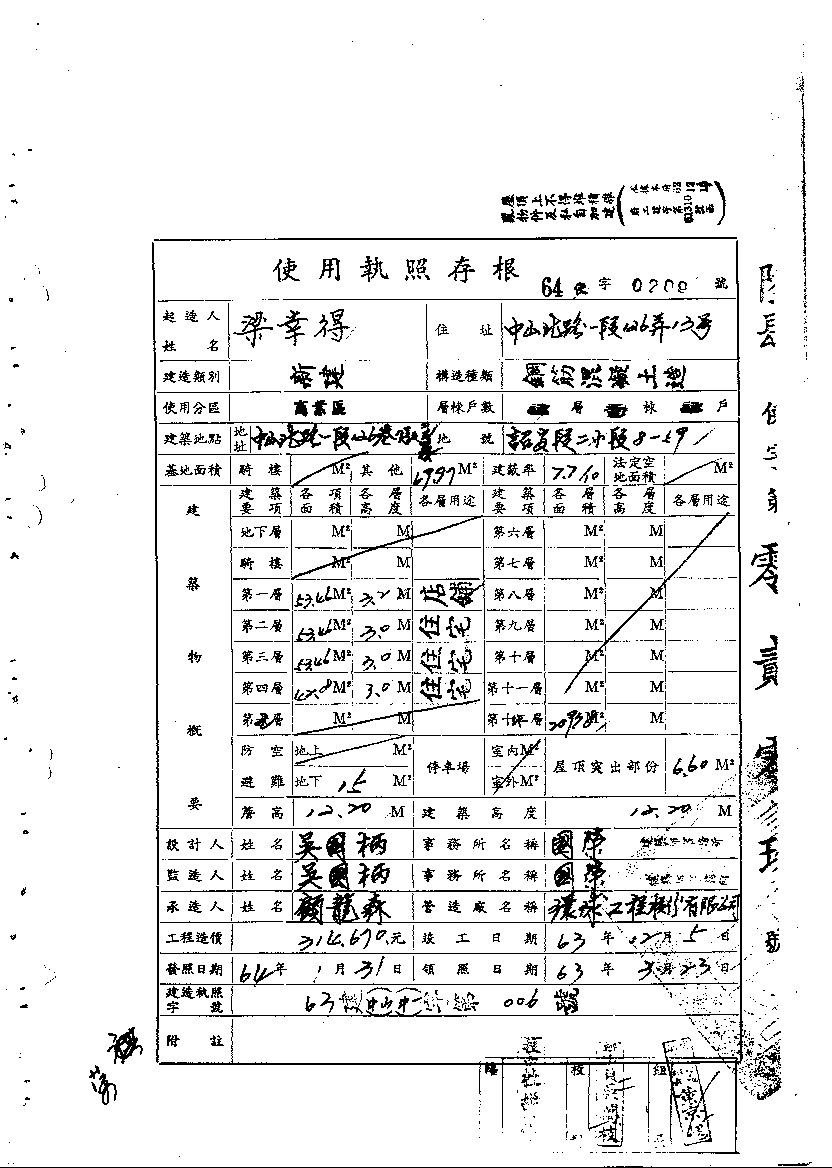 屋頂上不得堆積雜
物件及私自加建
使用執照存根
64 使 字 0200 號
起造人姓名 梁幸得 住址 中山北路一段126弄13号
建造類別 新建 構造種類 鋼筋混凝土造
使用分區 商業區 層棟戶數 層 棟 戶
建築地點 地址 中山北路一段126巷 地號 段二小段8-59
基地面積 騎樓 M² 其他 69.97 M² 建蔽率 7.7/10 法定空地面積 M²
建築物概要
建築要項 各項面積 各層高度 各層用途 建築要項 各項面積 各層高度 各層用途
地下層 M² M 第六層 M² M
騎樓 M² M 第七層 M² M
第一層 53.46 M² 3.2 M 店鋪 第八層 M² M
第二層 53.46 M² 3.0 M 住宅 第九層 M² M
第三層 53.46 M² 3.0 M 住宅 第十層 M² M
第四層 M² 3.0 M 住宅 第十一層 M² M
M² M M²
防空避難 地上 M² 地下 15 M² 停車場 室內 M² 室外 M² 屋頂突出部份 6.60 M²
簷高 12.20 M 建築高度 12.20 M
設計人 姓名 吳國柄 事務所名稱 國際
監造人 姓名 吳國柄 事務所名稱 國際
承造人 姓名 顧龍森 營造廠名稱 環球工程股份有限公司
工程造價 314,670.元 竣工日期 63年12月5日
發照日期 64年1月31日 領照日期 63年3月23日
建造執照字號 63 中山 006 號
附註
核
組
零貳零